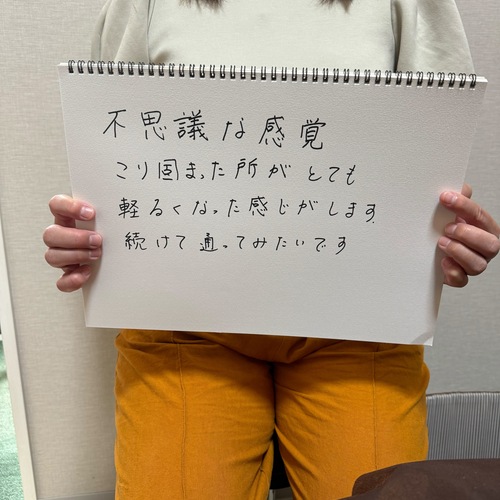 不思議な感覚
こり固まった所がとても
軽るくなった感じがします
続けて通ってみたいです